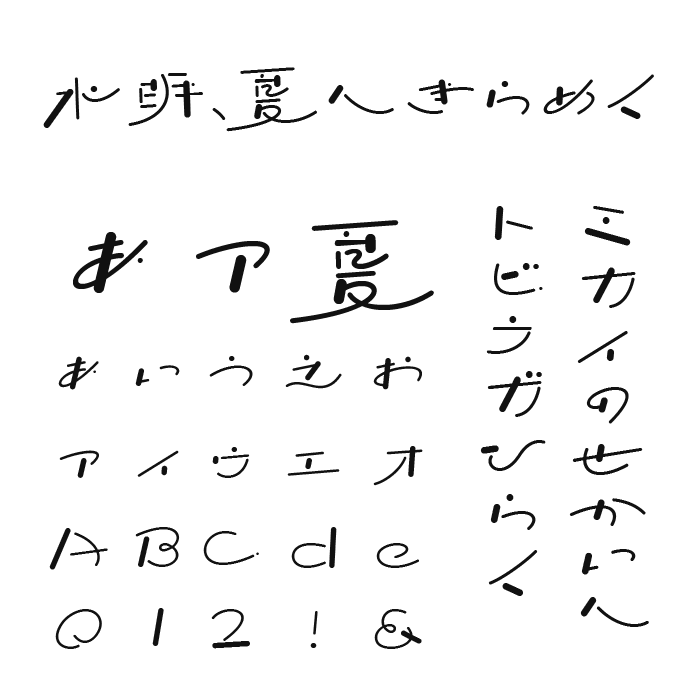 水、夏へきらめく
あア夏
あいうえお
アイウエオ
ABCde
012!&
ミカイのせかいへ
トビラガひらく